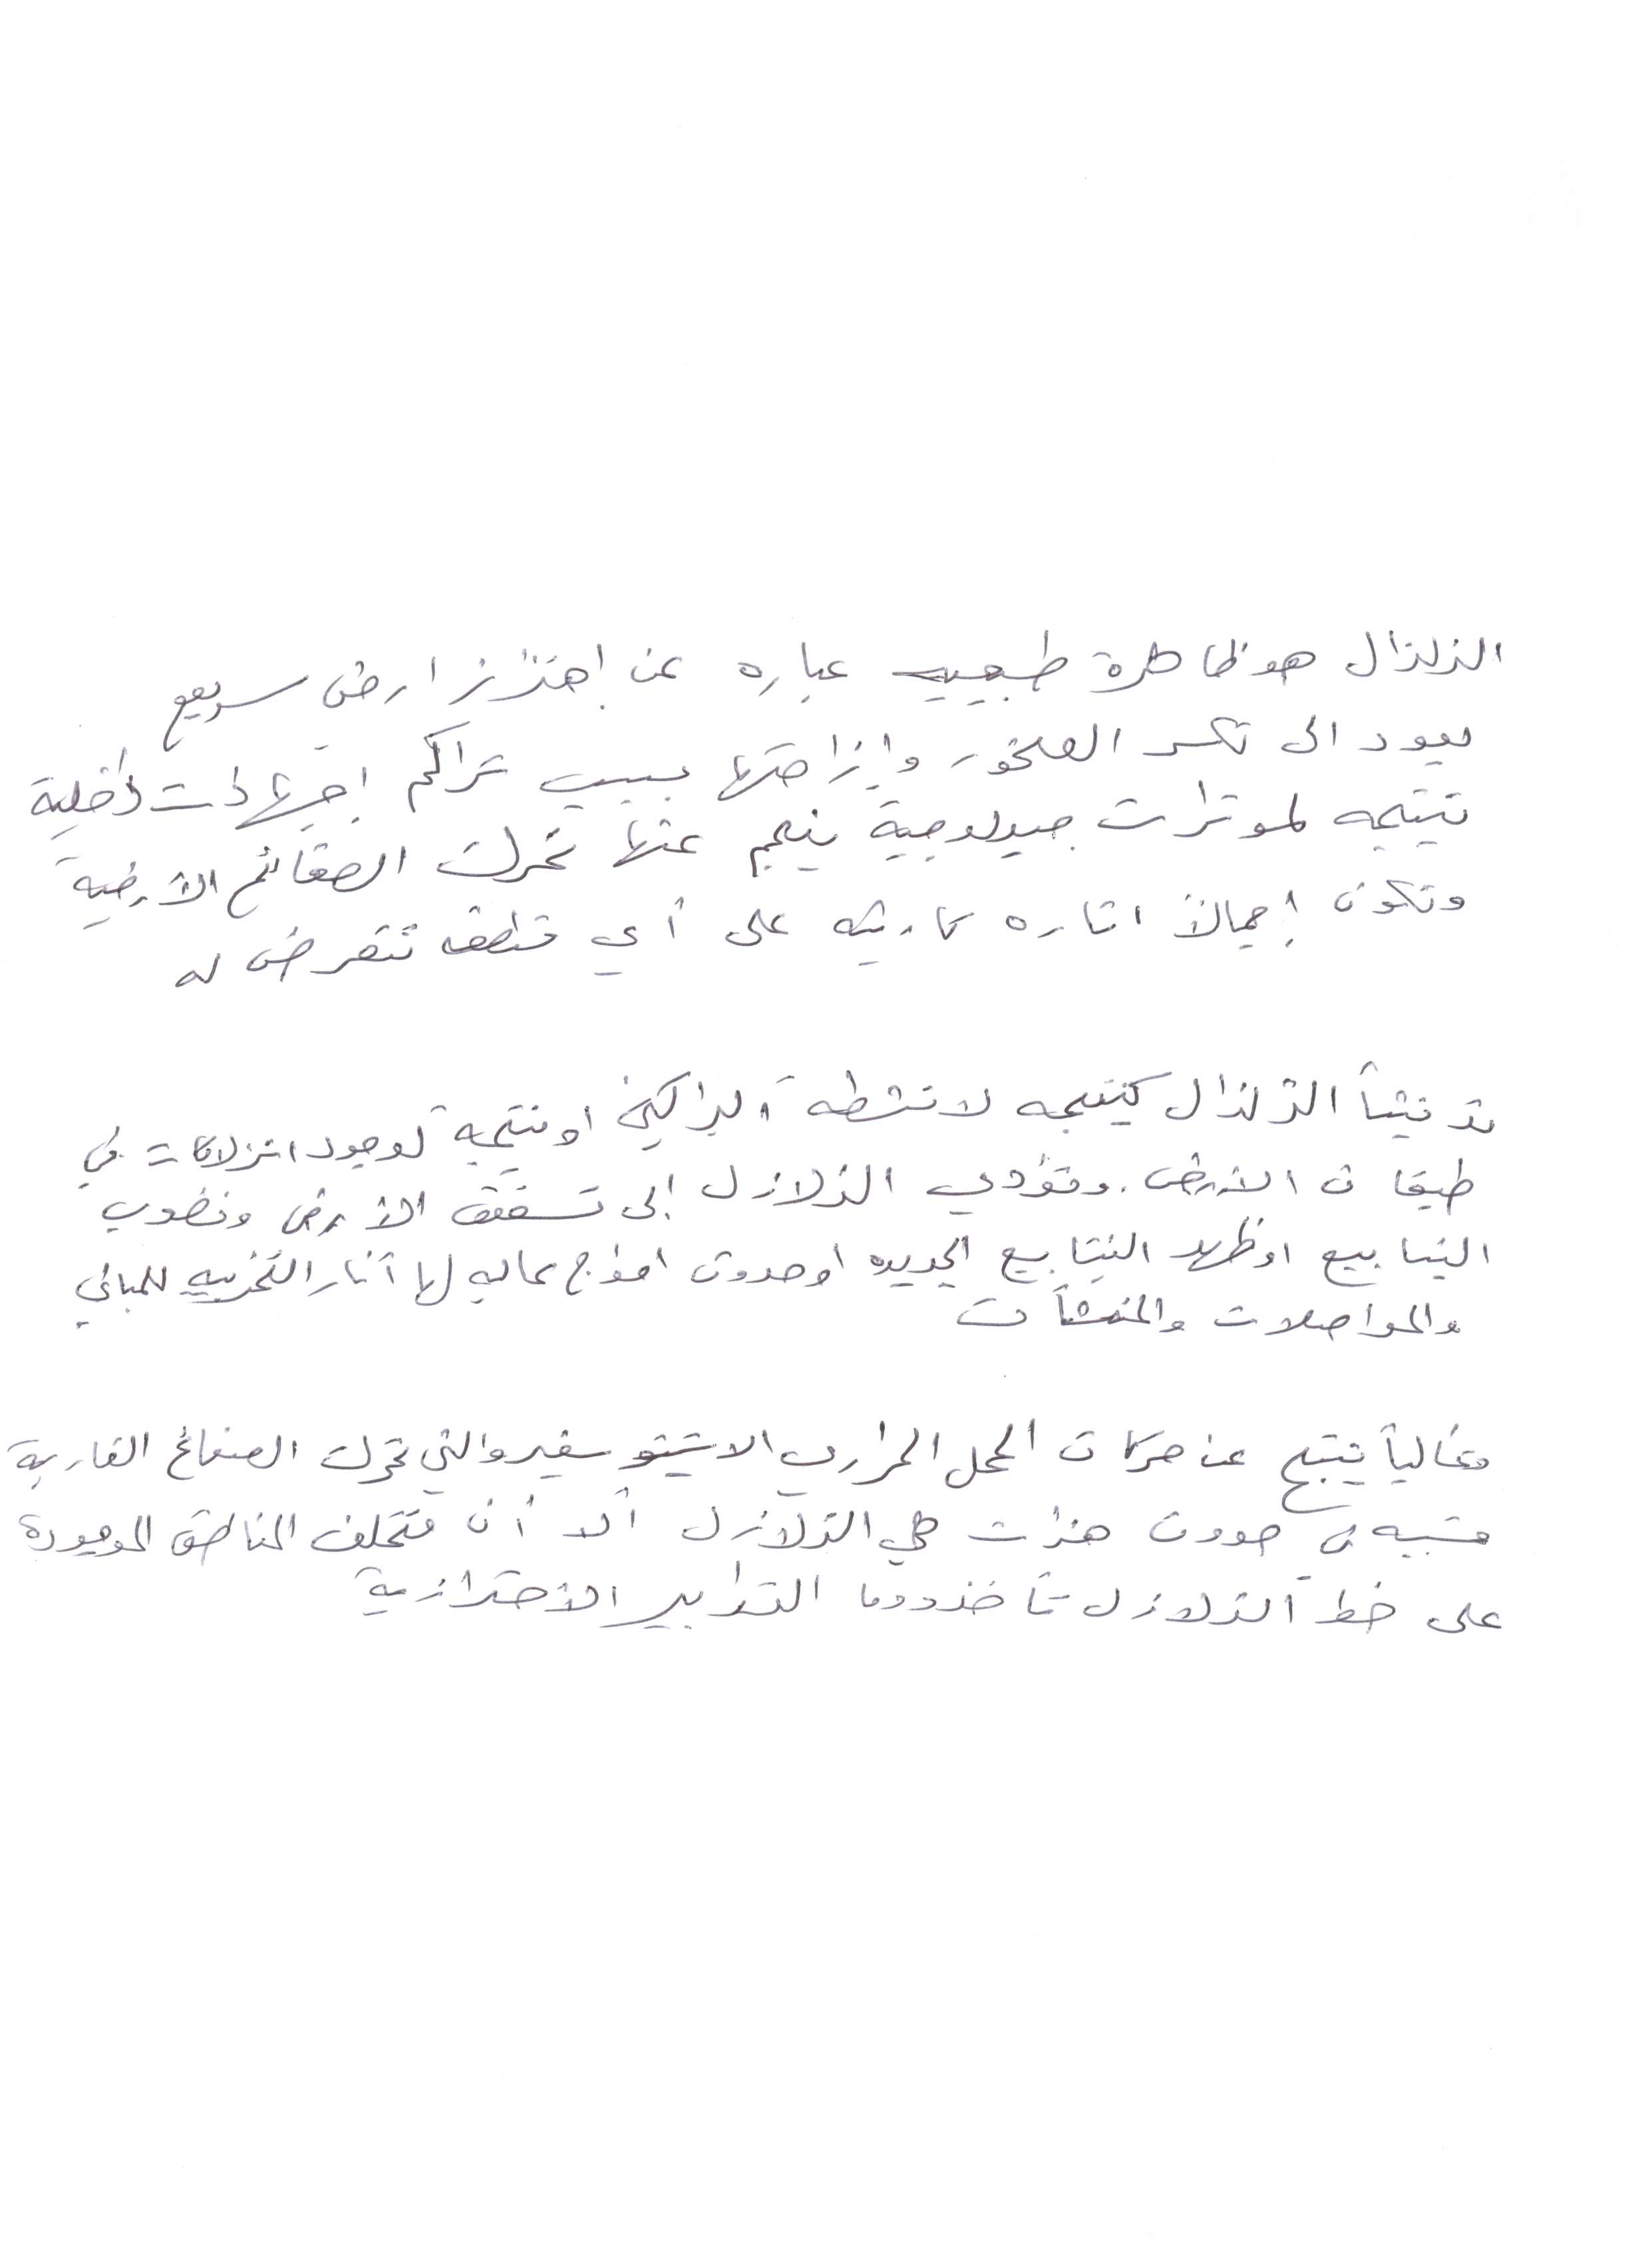 الزلزال هو ظاهرة طبيعيه عباره عن إهتزاز ارضي سريع
يعود الى تكسر الصخور وإزاحتها بسبب تراكم إجهادات داخلية
نتيجه لموترات جيولوجية ينجم عنها تحرك الصفائح الأرضية
وتكون إجمالاً اثاره كارثيه على أي منطقه تتعرض له
قد ينشأ الزلزال كنتيجه لانشطه البراكين او نتيجة لوجود انزلاقات في
طبقات الأرض. وتؤدي الزلازل إلى تشقق الأرض ونضوب
الينابيع او ظهور الينابيع الجديده او حدوث امواج عاليه لها آثار التخريبيه للمباني
والمواصلات والمنشأت
وغالباً ينتج عن حركات الحمل الحراري الاستينوسفير والتي تحرك الصفائح القارية
حدوث هزات هي الزلازل ألا أن مختلف المناطق الموجودة
على خط الزلازل تأخذ دوما التدابير الأحترازية